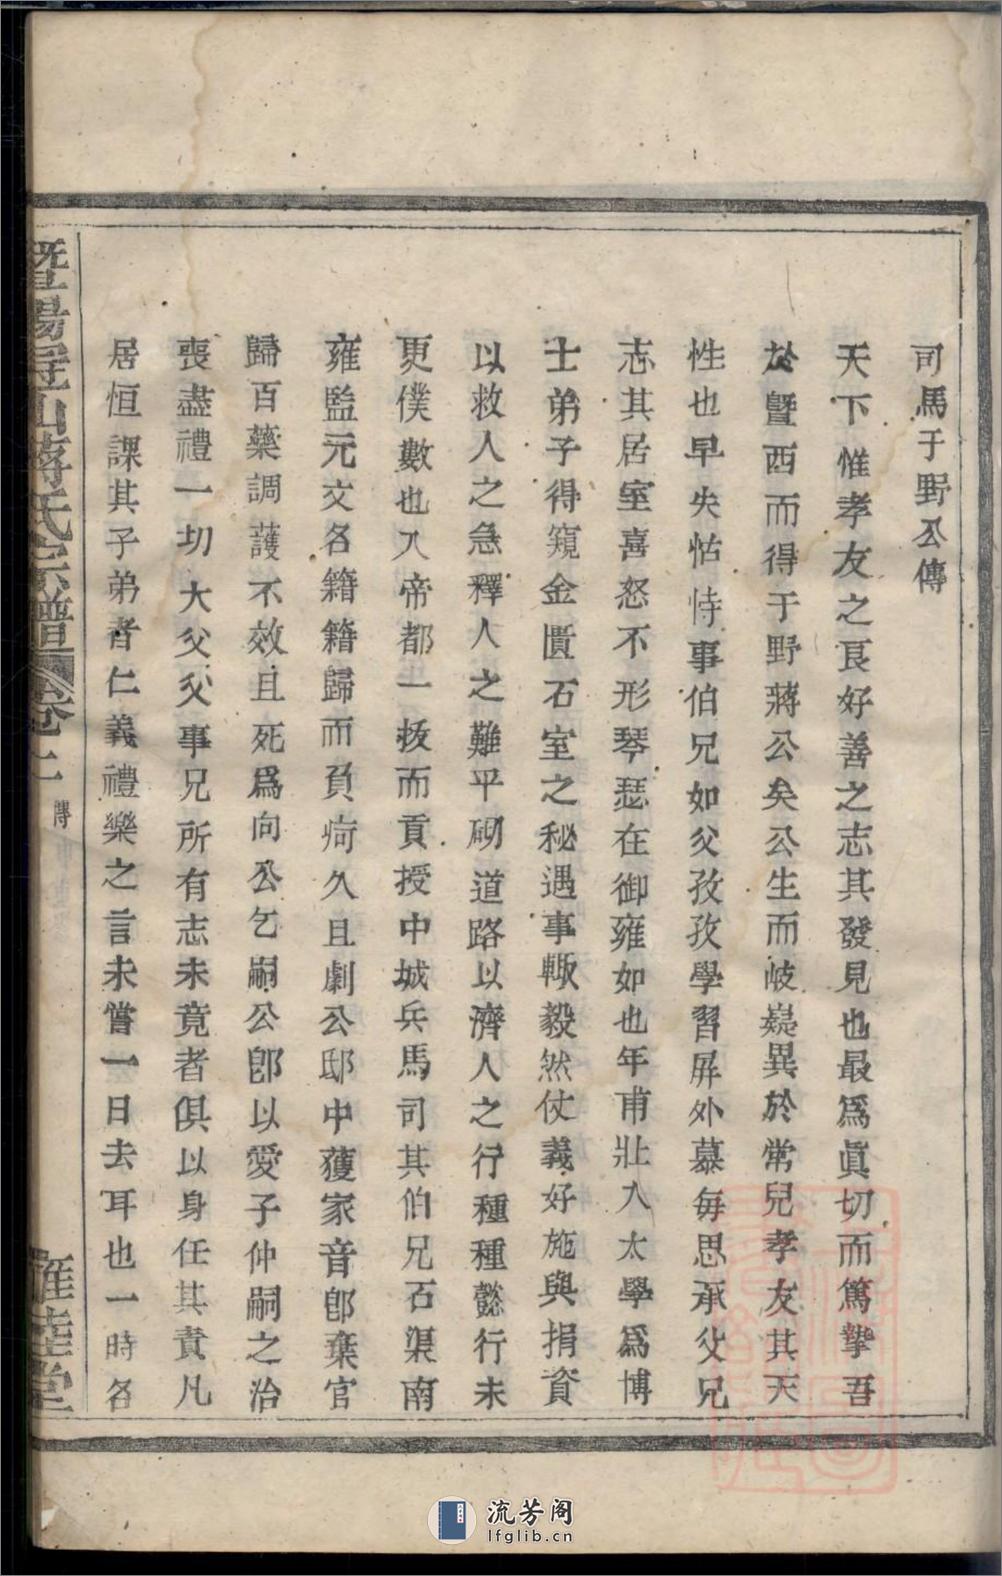 司馬于野公傳
天下惟孝友之良好善之志其發見也最爲眞切而篤摯吾
於暨西而得于野蔣公矣公生而岐嶷異於常兒孝友其天
性也早失怙恃事伯兄如父孜孜學習屏外慕每思承父兄
志其居室喜怒不形琴瑟在御雍如也年甫壯入太學爲博
士弟子得窺金匱石室之秘遇事輙毅然仗義好施與捐資
以救人之急釋人之難平砌道路以濟人之行種種懿行未
更僕數也入帝都一拔而貢授中城兵馬司其伯兄石渠南
雍監元文名籍籍歸而負疴久且劇公邸中獲家音卽棄官
歸百藥調護不效且死爲向公乞嗣公卽以愛子仲嗣之治
喪盡禮一切大父父事兄所有志未竟者俱以身任其責凡
居恒課其子弟者仁義禮樂之言未嘗一日去耳也一時名
暨陽冠山蔣氏宗譜 卷上 傳 雍睦堂
流芳阁
lfglib.cn